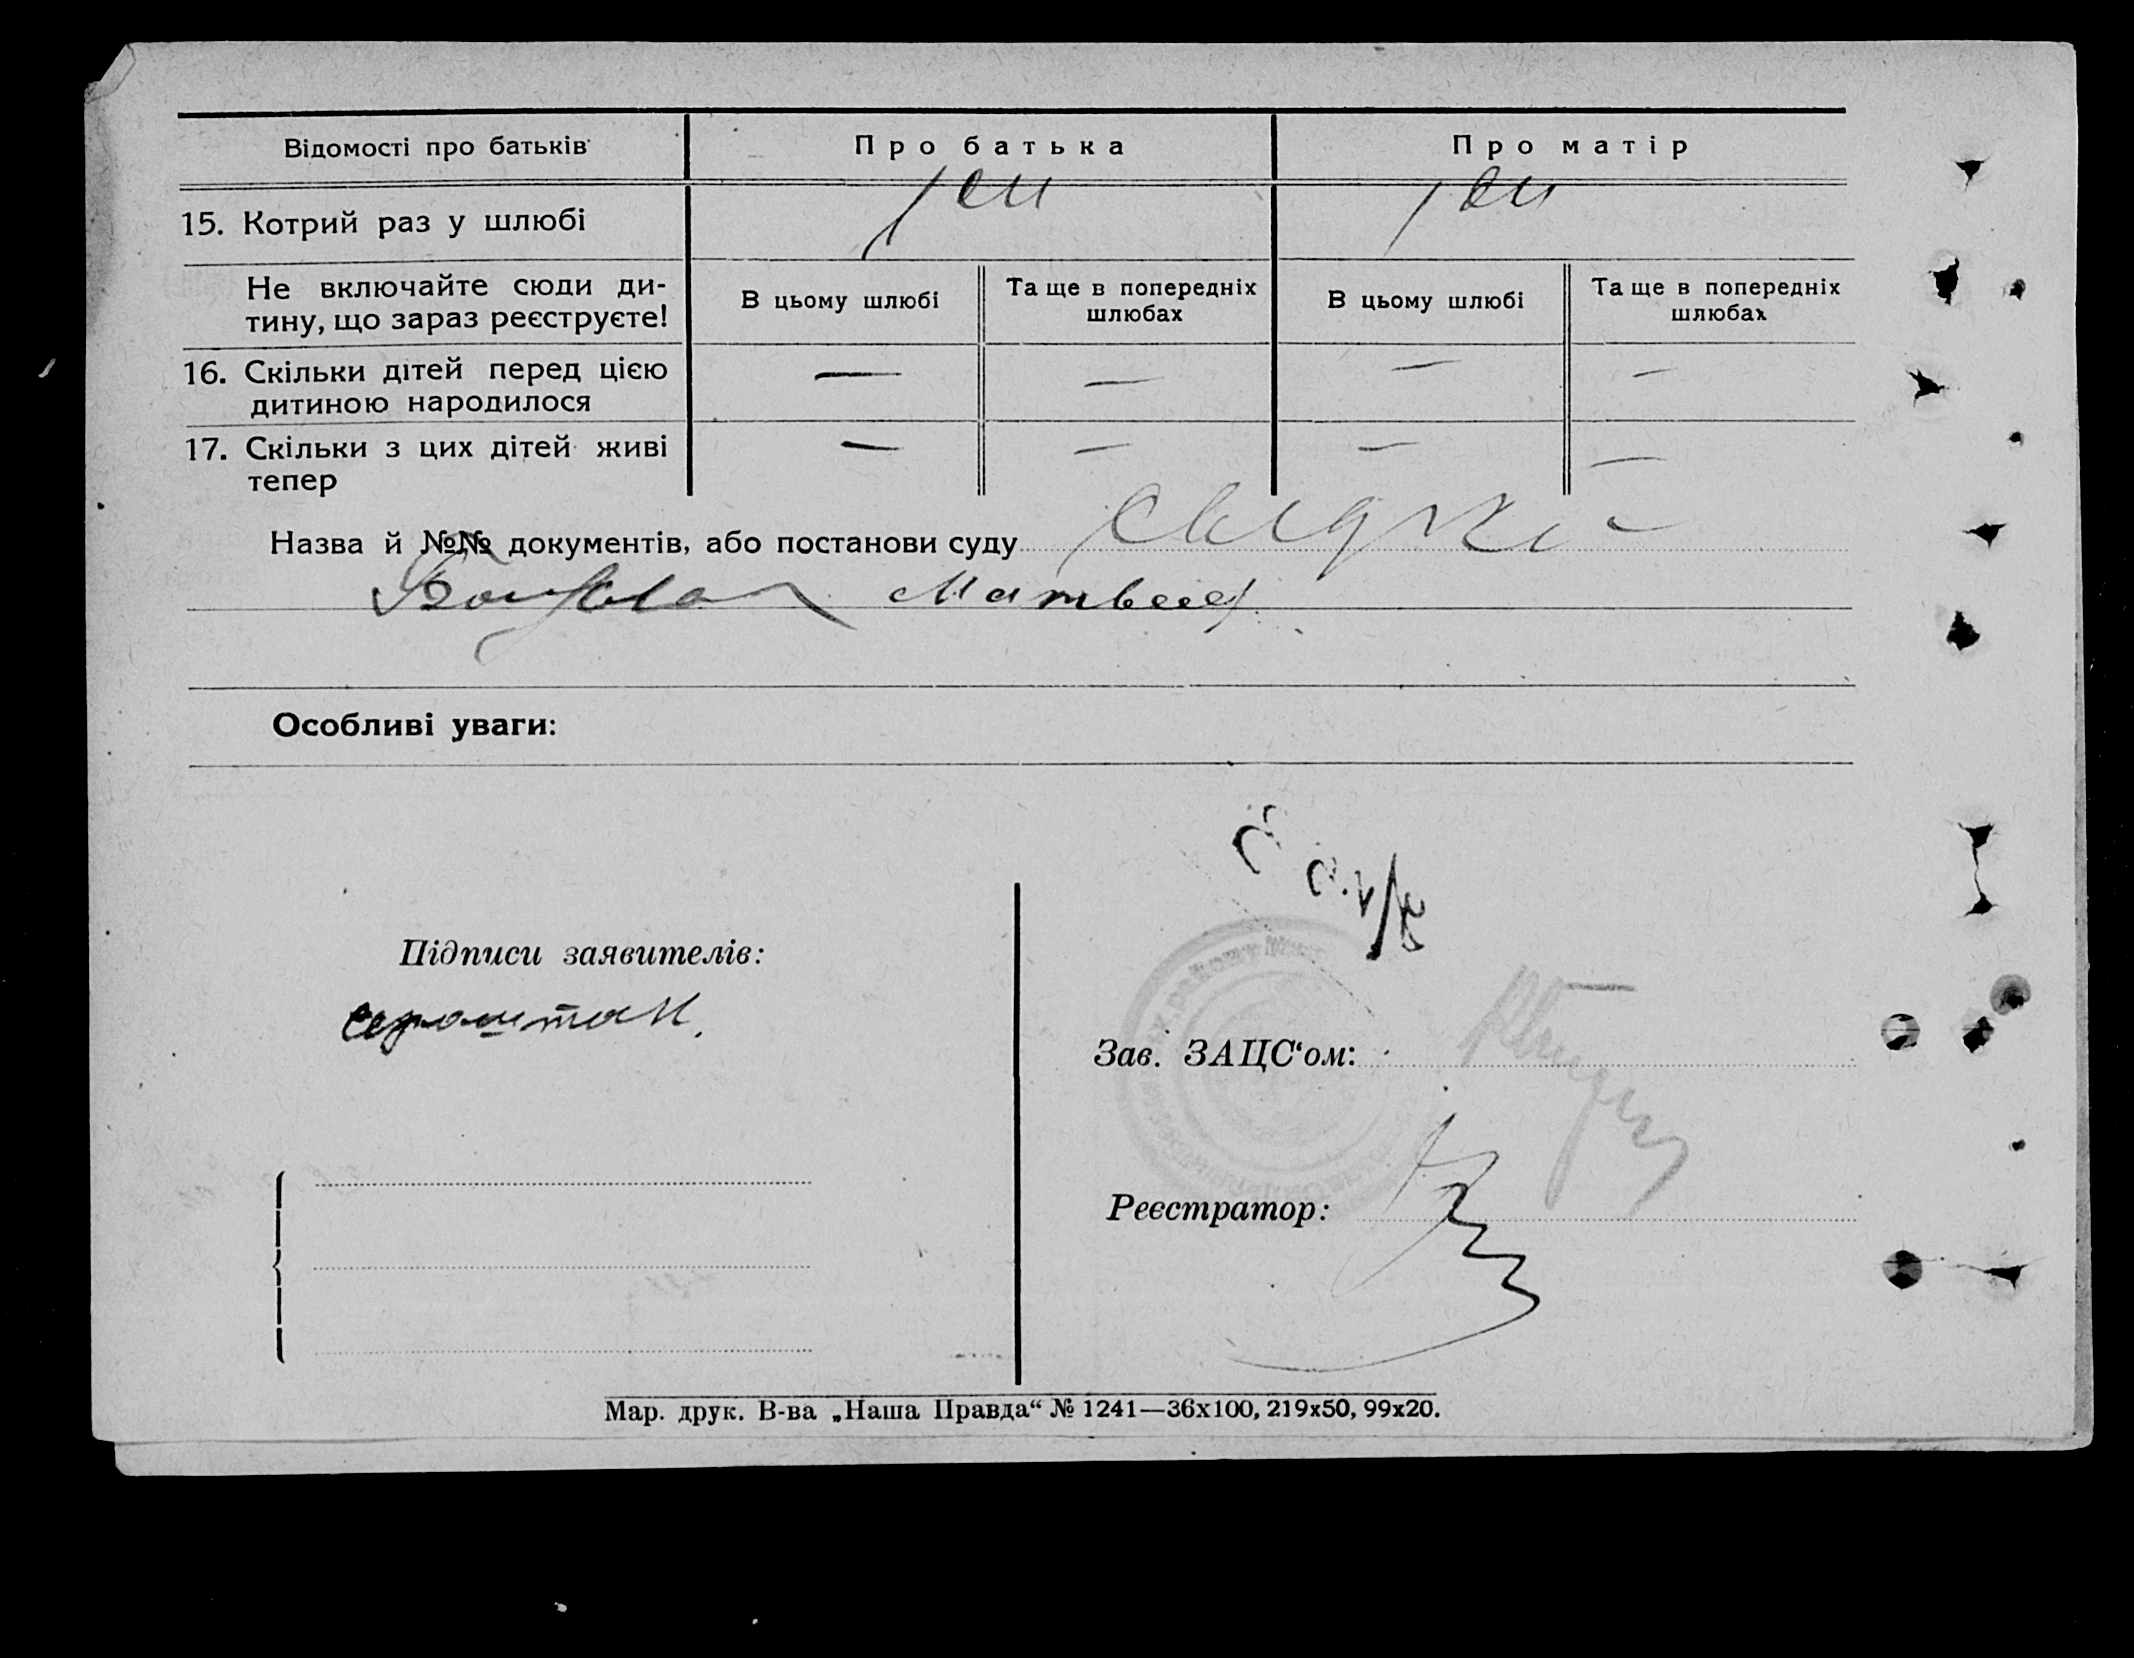 Відомості про батьків
Про батька
Про матір
15. Котрий раз у шлюбі
1ий
1ий
Не включайте сюди ди-
тину, що зараз реєструєте!
В цьому шлюбі
Та ще в попередніх
шлюбах
В цьому шлюбі
Та ще в попередніх
шлюбах
16. Скільки дітей перед цією
дитиною народилося
— — — —
17. Скільки з цих дітей живі
тепер
— — — —
Назва й №№ документів, або постанови суду
Матвеев
Особливі уваги:
Підписи заявителів:
Зав. ЗАЦС‘ом:
Реєстратор:
Мар. друк. В-ва „Наша Правда“ № 1241—36х100, 219х50, 99х20.